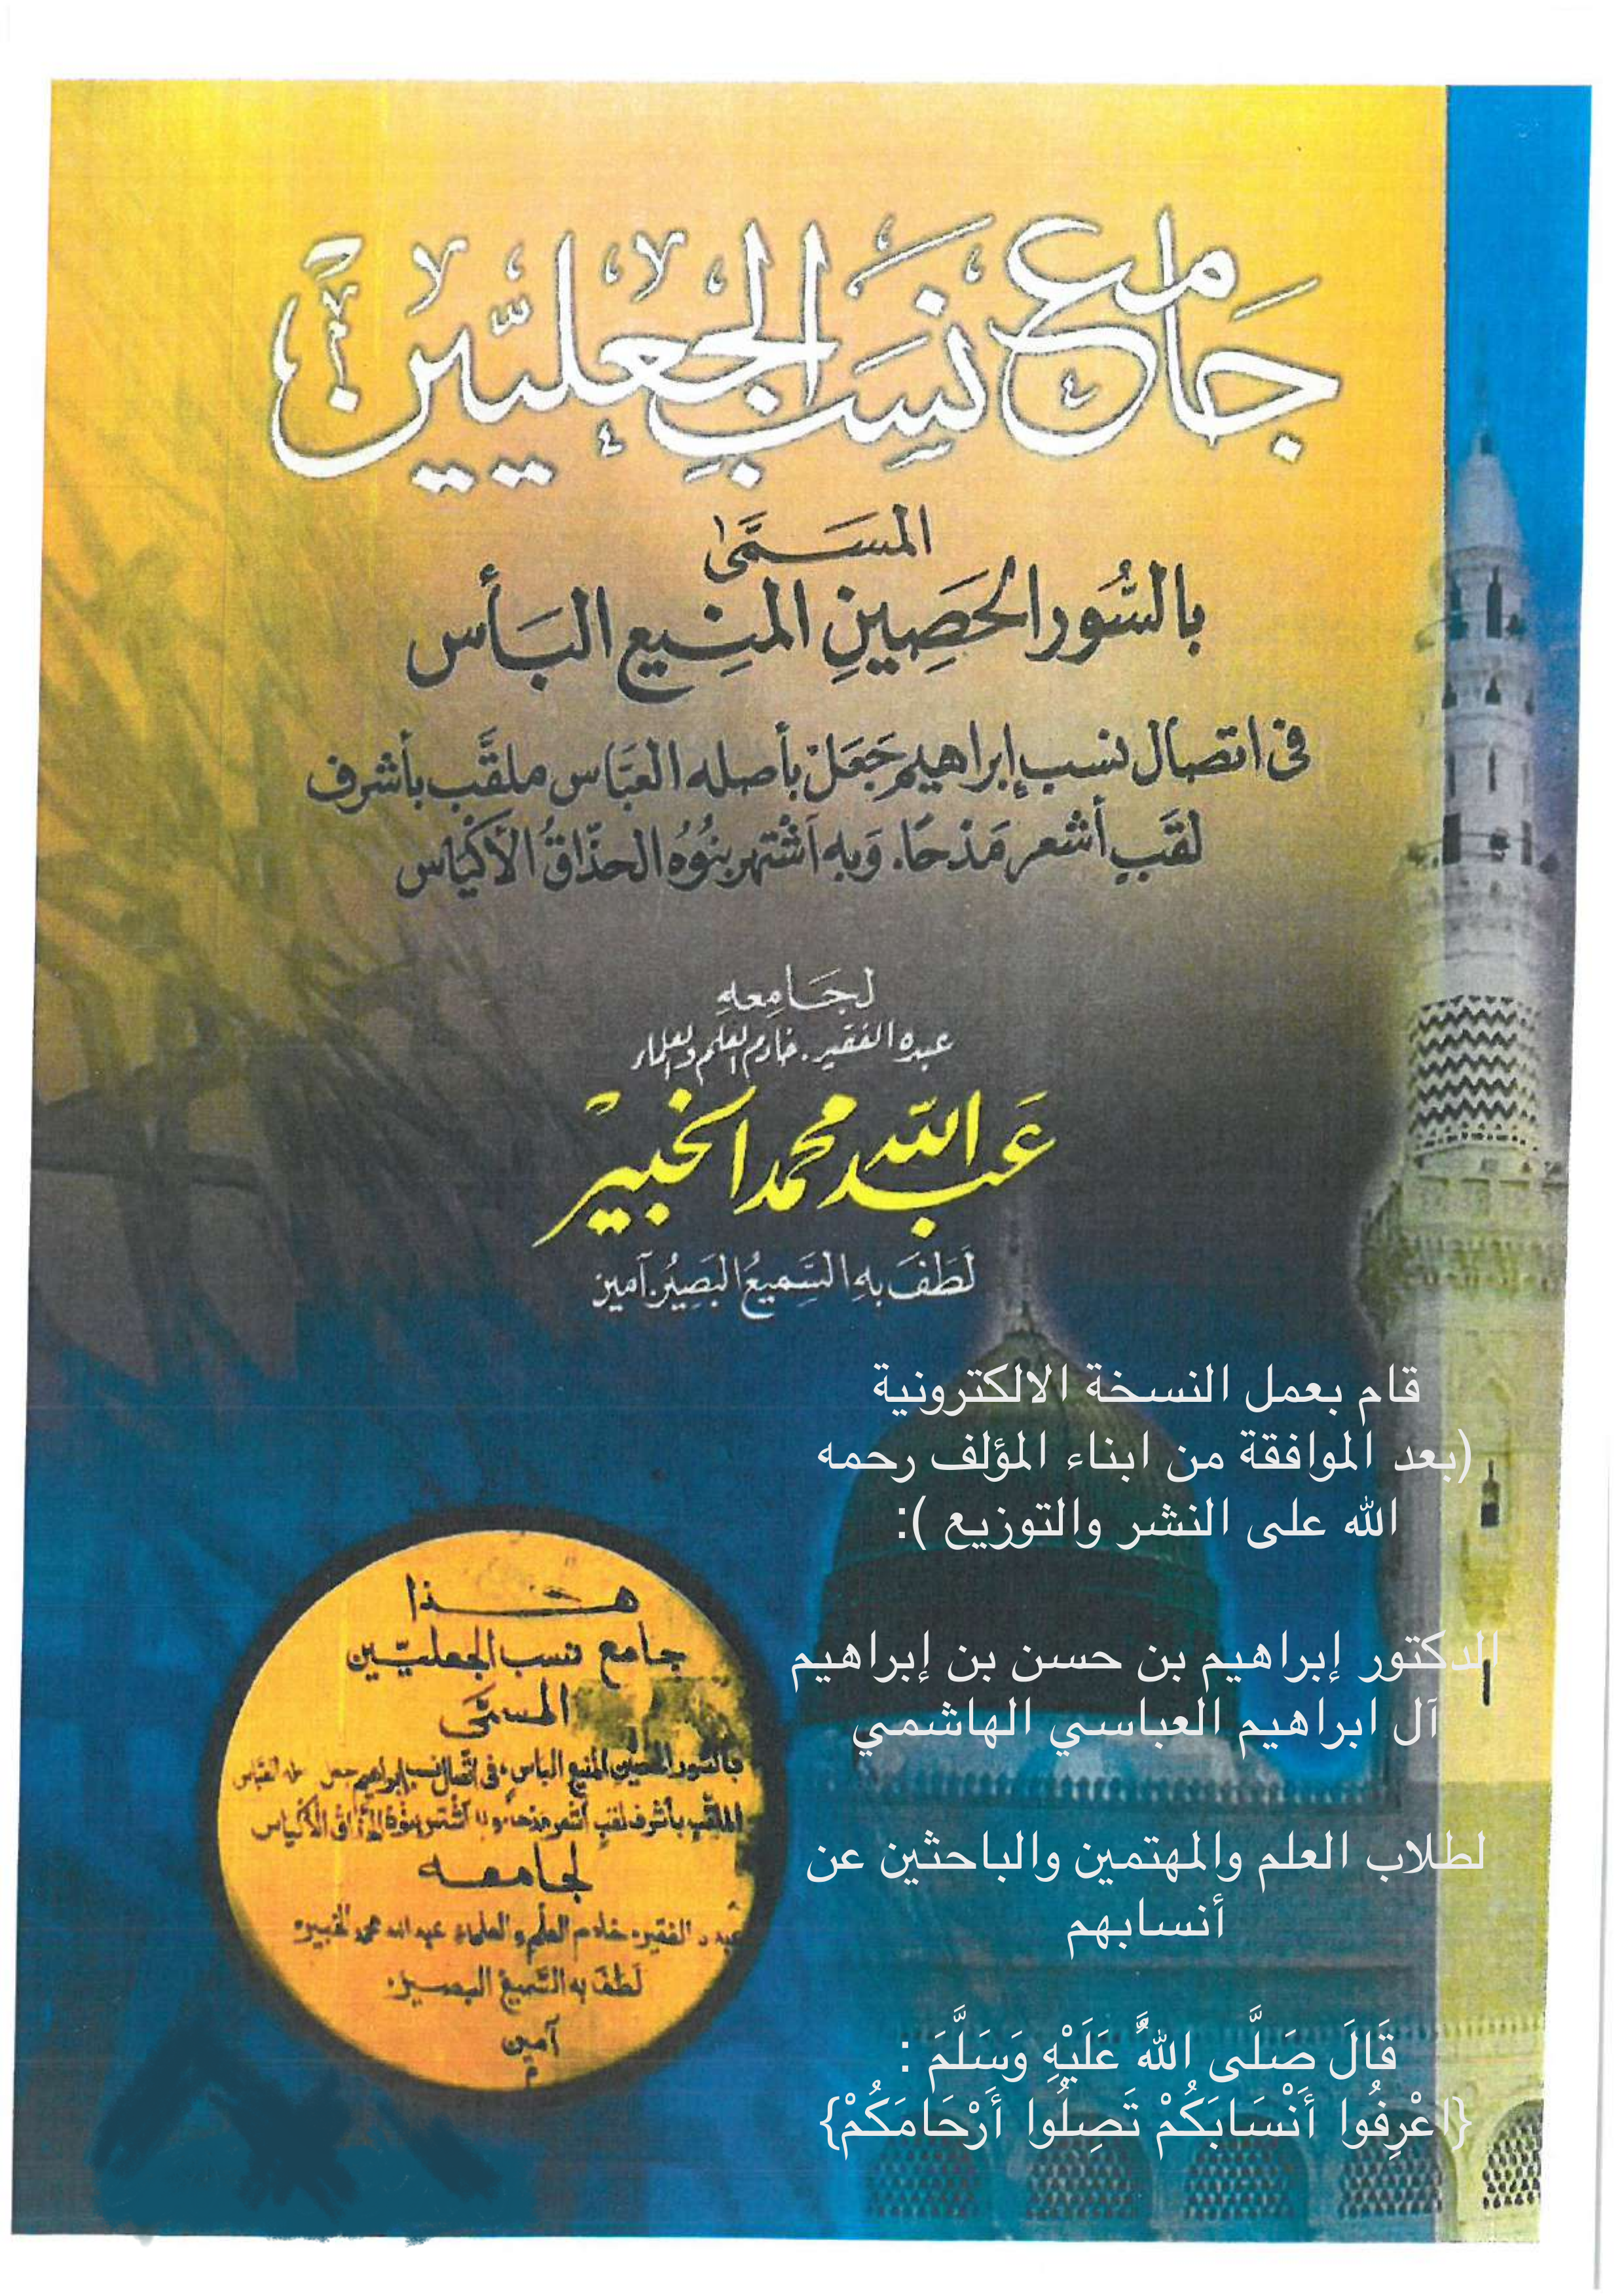 جَامع نَسَبِ الجَعليّين
المسَمَّى
بالسُّور الحَصِينِ المنِيع البَأس
فى اتصال نسب إبراهيم جَعَلْ بأصله العَبَّاس ملقَّب بأشرف
لقَبٍ أشعر مَدْحًا. وَبِهِ اَشْتهر بنُوُهُ الحذّاقُ الأكيَاس
لجَامِعهِ
عبده الفقير. خادم العلم والعلماء
عَبدالله محمد الخبير
لَطَفَ بهِ السَّمِيعُ البَصِيرُ. آمين
قام بعمل النسخة الالكترونية
(بعد الموافقة من ابناء المؤلف رحمه
الله على النشر والتوزيع ):
الدكتور إبراهيم بن حسن بن إبراهيم
آل ابراهيم العباسي الهاشمي
لطلاب العلم والمهتمين والباحثين عن
أنسابهم
قَالَ صَلَّى اللهُ عَلَيْهِ وَسَلَّمَ :
{اعْرِفُوا أَنْسَابَكُمْ تَصِلُوا أَرْحَامَكُمْ}
هـذا
جامع نسب الجعليّين
المسمّى
بالسّور الحصين المنيع الباس، فى اتّصال نسب إبراهيم جعل العبّاس
الملقّب بأشرف لقبٍ أشعر مدحا، وبه اشتهر بنوُهُ الحذّاق الأكياس
لجامعه
عبده الفقير، خادم العلم والعلماء عبد الله محمد الخبير،
لَطَفَ به السّميعُ البصير.
آمين